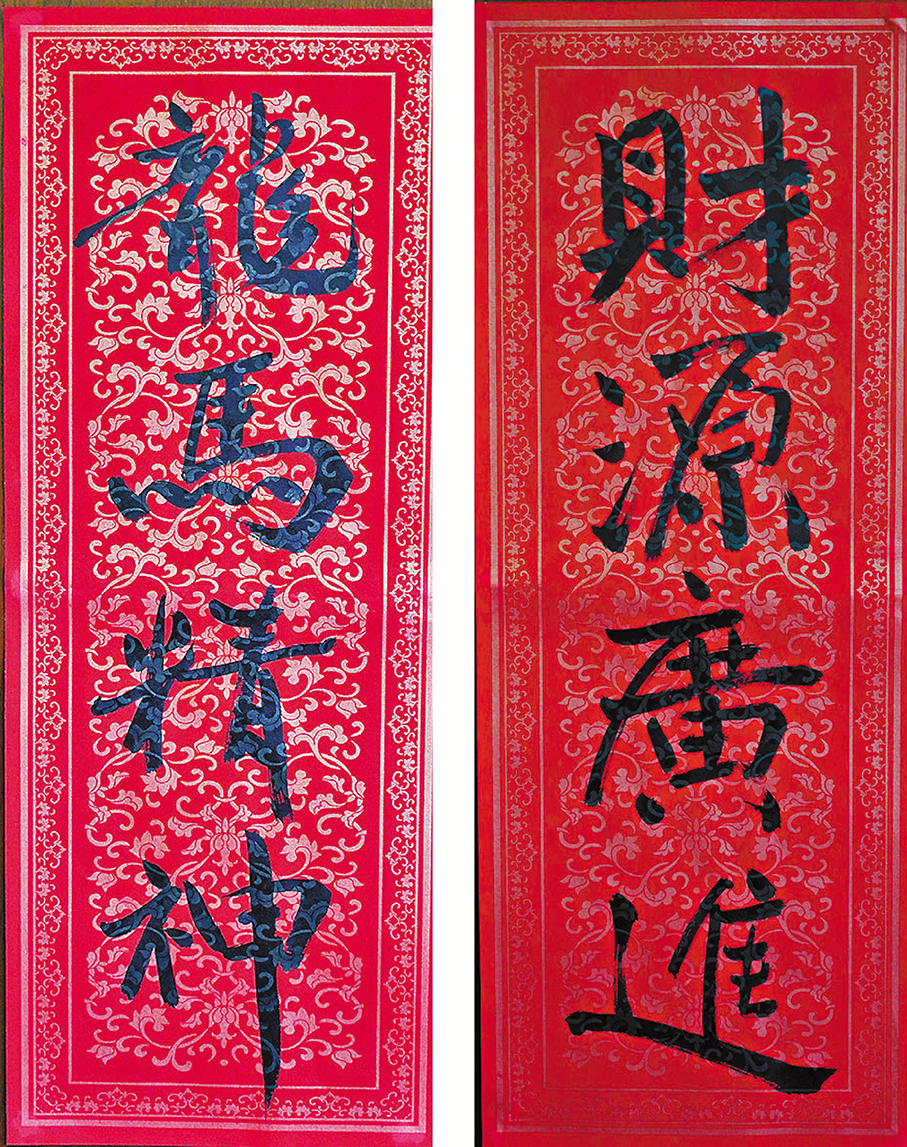 財源廣進
龍馬精神